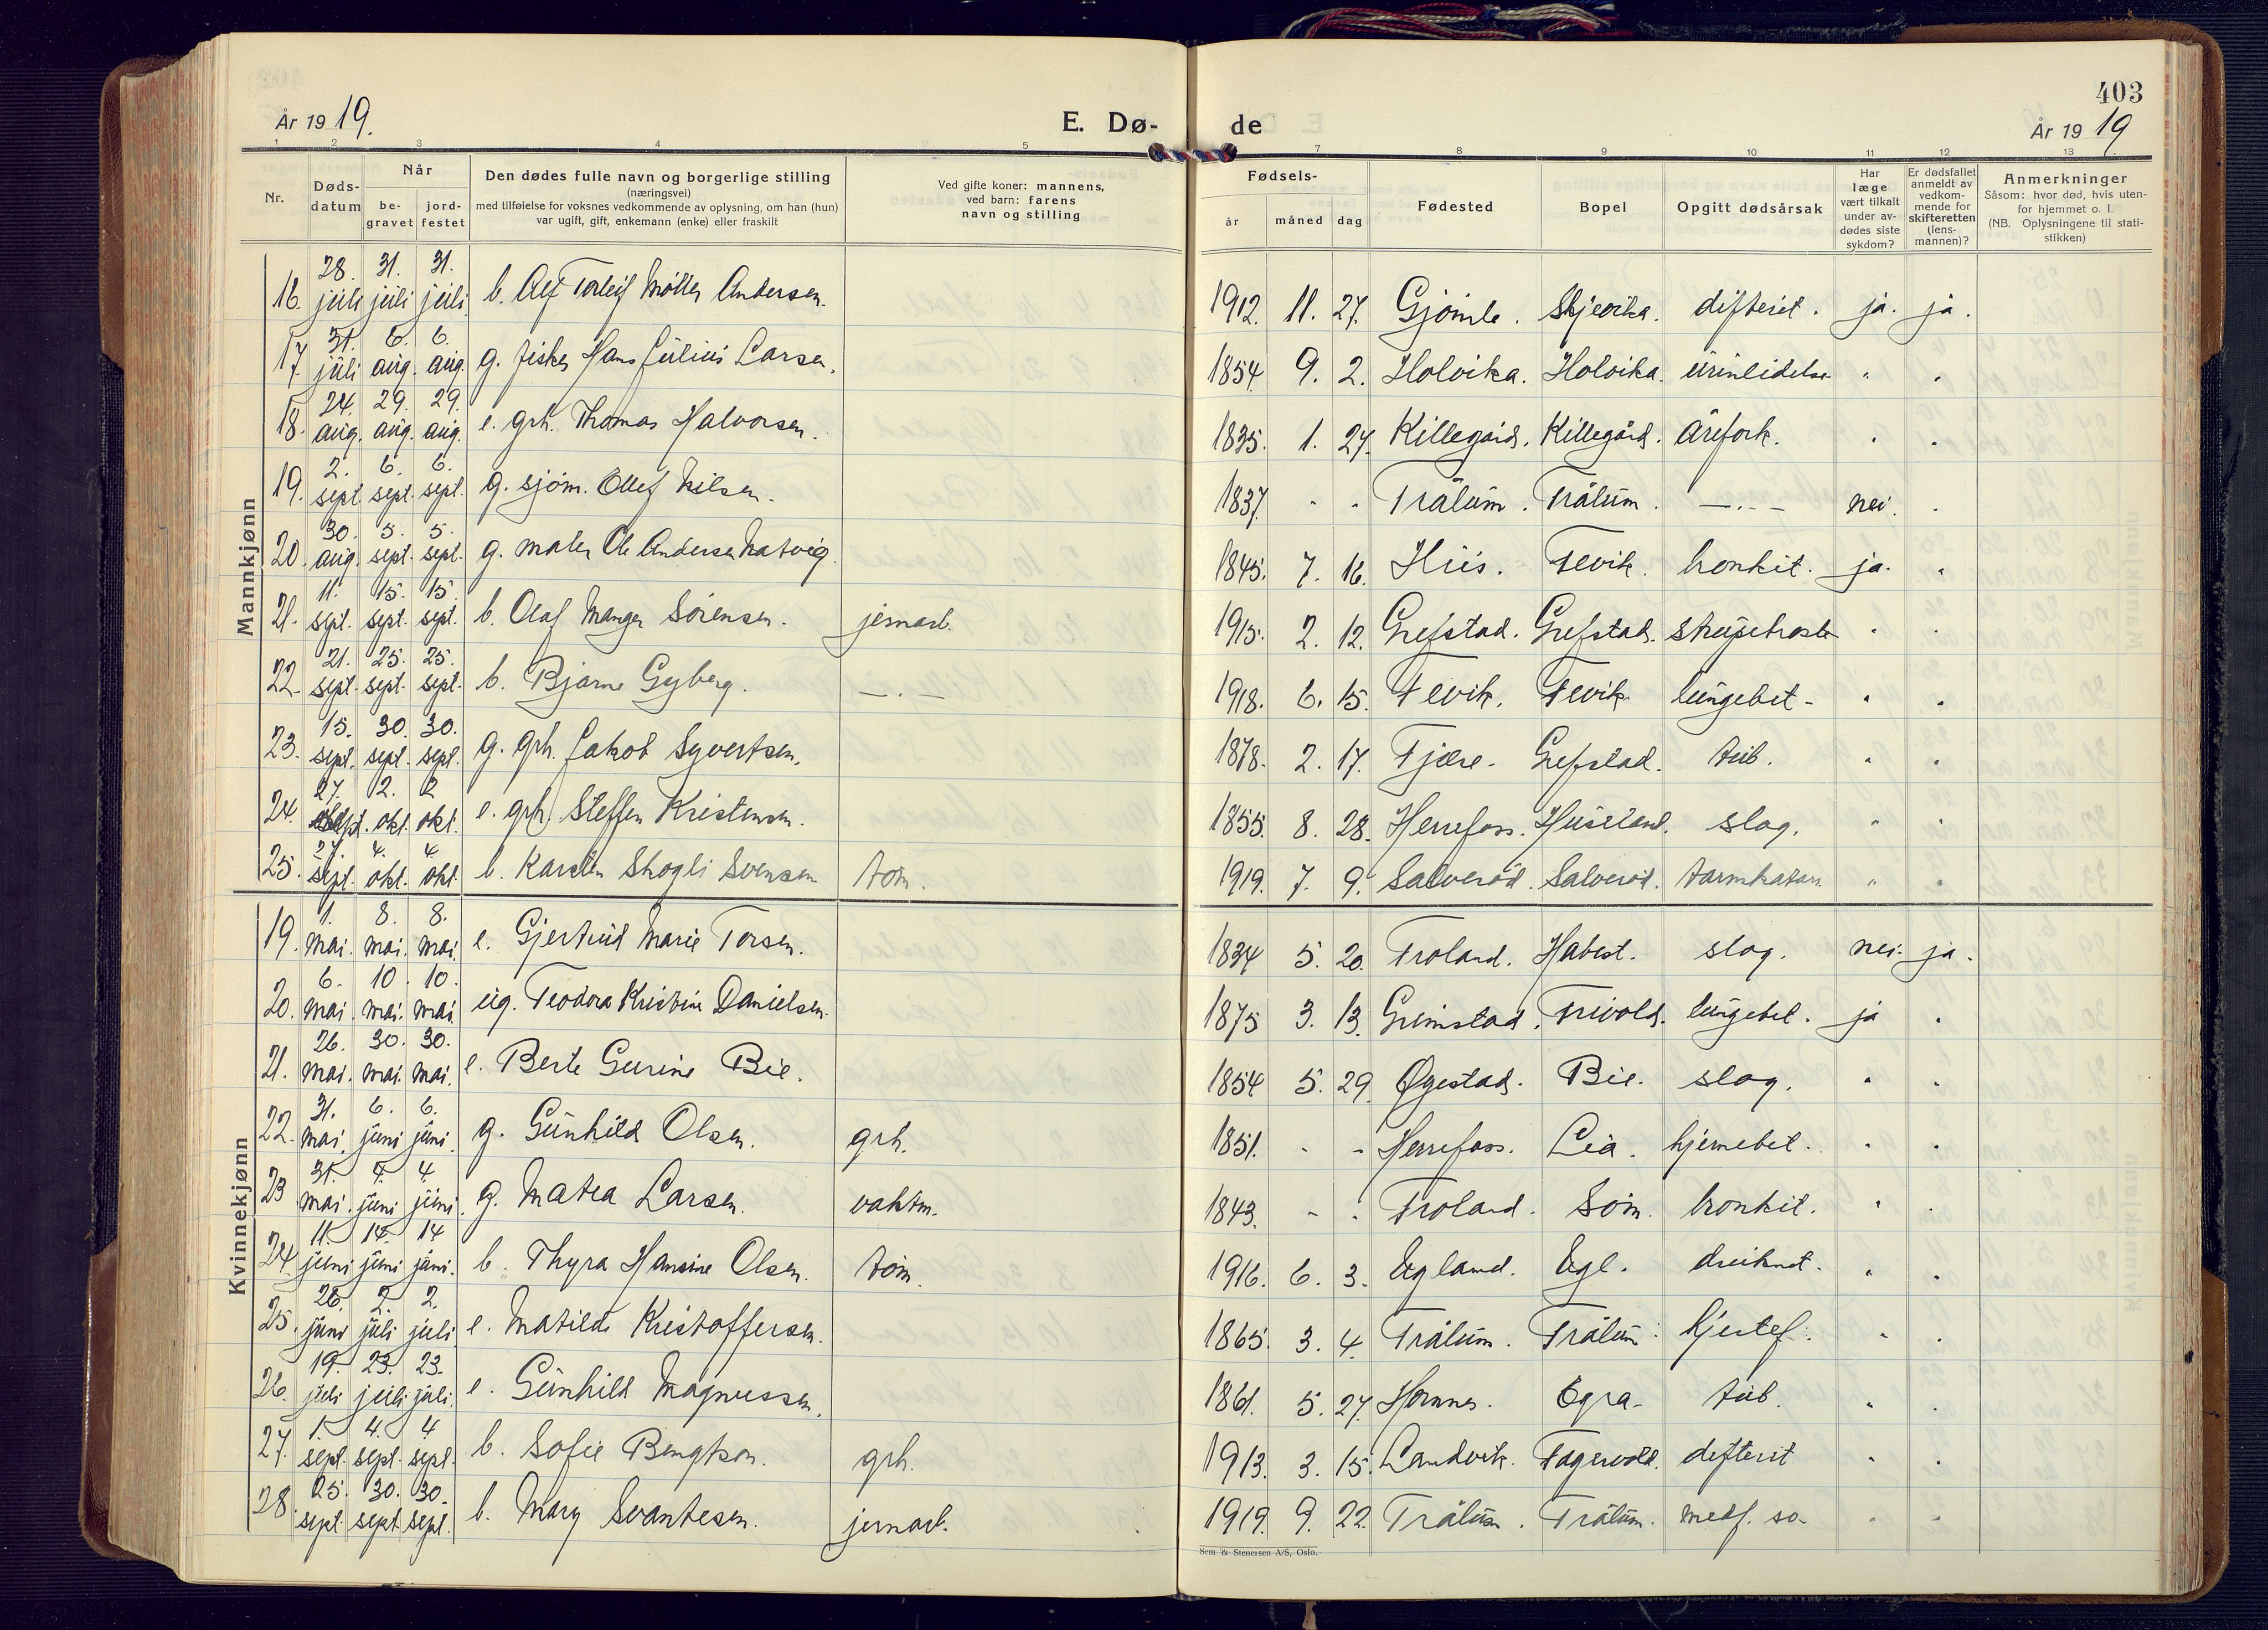 403
År 19 19.
E. Dø-
de
År 19 19
1 2 3 4 5 7 8 9 10 11 12 13
Nr.
Døds-
datum
Når
be-
gravet
jord-
festet
Den dødes fulle navn og borgerlige stilling
(næringsvei)
med tilføielse for voksnes vedkommende av oplysning, om han (hun)
var ugift, gift, enkemann (enke) eller fraskilt
Ved gifte koner: mannens,
ved barn: farens
navn og stilling
Fødsels-
år måned dag
Fødested
Bopel
Opgitt dødsårsak
Har
læge
vært tilkalt
under av-
dødes siste
sykdom?
Er dødsfallet
anmeldt av
vedkom-
mende for
skifteretten
(lens-
mannen)?
Anmerkninger
Såsom: hvor død, hvis uten-
for hjemmet o. l.
(NB. Oplysningene til stati-
stikken)
Mannkjønn
16. 28. juli 31. juli 31. juli b. Alf Torleif Møller Andersen. 1912. 11. 27. Gjømle. Skjevika. difterit. ja. ja.
17. 31. juli 6. aug. 6. aug. g. fisker Hans Julius Larsen. 1854 9. 2. Holvika. Holvika. urinlidelse " "
18. 24. aug. 29. aug. 29. aug. e. grh. Thomas Halvorsen. 1835. 1. 27. Killegård. Killegård. årefork. " "
19. 2. sept. 6. sept. 6. sept. g. sjøm. Ollef Nilsen. 1837. - - Trålum. Trålum. —.— nei. "
20. 30. aug. 5. sept. 5. sept. g. maler Ole Andersen Natvig. 1845. 7. 16. Hiis. Fevik. bronkit. ja. "
21. 11. sept. 15. sept. 15. sept. b. Olaf Manger Sørensen. jernarb. 1915. 2. 12. Grefstad. Grefstad. strupehoste " "
22. 21. sept. 25. sept. 25. sept. b. Bjarne Gyberg. —.— 1918. 6. 15. Fevik. Fevik. lungebet. " "
23. 15. sept. 30. sept. 30. sept. g. grh. Jakob Syvertsen. 1878. 2. 17. Fjære. Grefstad. tub. " "
24. 27. sept. 2. okt. 2 okt. e. grh. Steffen Kristensen. 1855. 8. 28. Herrefoss. Huseland. slag. " "
25. 27. sept. 4. okt. 4. okt. b. Karsten Skogli Svensen tøm. 1919. 7. 9. Salverød. Salverød. tarmkatarr. " "
Kvinnekjønn
19. 1. mai. 8. mai. 8. mai. e. Gjertrud Marie Torsen. 1834 5. 20. Froland. Habest. slag. nei. ja.
20. 6. mai. 10. mai. 10. mai. ug. Teodora Kristine Danielsen. 1875 3. 13. Grimstad. Frivold. lungebet. ja "
21. 26. mai. 30. mai. 30. mai. e. Berte Gurine Bie. 1854 5. 29. Øgestad. Bie. slag. " "
22. 31. mai. 6. juni 6. juni g. Gunhild Olsen. grh. 1851. - - Herrefoss. Lia. hjernebet. " "
23 31. mai. 4. juni 4. juni. g. Matea Larsen. vaktm. 1843. - - Froland. Søm. bronkit. " "
24 11. juni 14. juni 14 juni. b. Thyra Hansine Olsen. tøm. 1916. 6. 3. Egland. Egl. druknet. " "
25. 26. juni 2. juli 2. juli e. Matilde Kristoffersen. 1865. 3. 4. Trålum. Trålum. hjertef. " "
26. 19. juli 23. juli 23. juli. e. Gunhild Magnussen. 1861. 5. 27. Hornnes. Egra. tub. " "
27. 1. sept. 4. sept. 4 sept. b. Sofie Bengtson. grh. 1913. 3. 15. Landvik. Fagervold. difterit " "
28. 25. sept. 30. sept. 30. sept. b. Mary Svantesen. jernarb. 1919. 9. 22. Trålum. Trålum. medf. sv. " "
Sem & Stenersen A/S, Oslo.